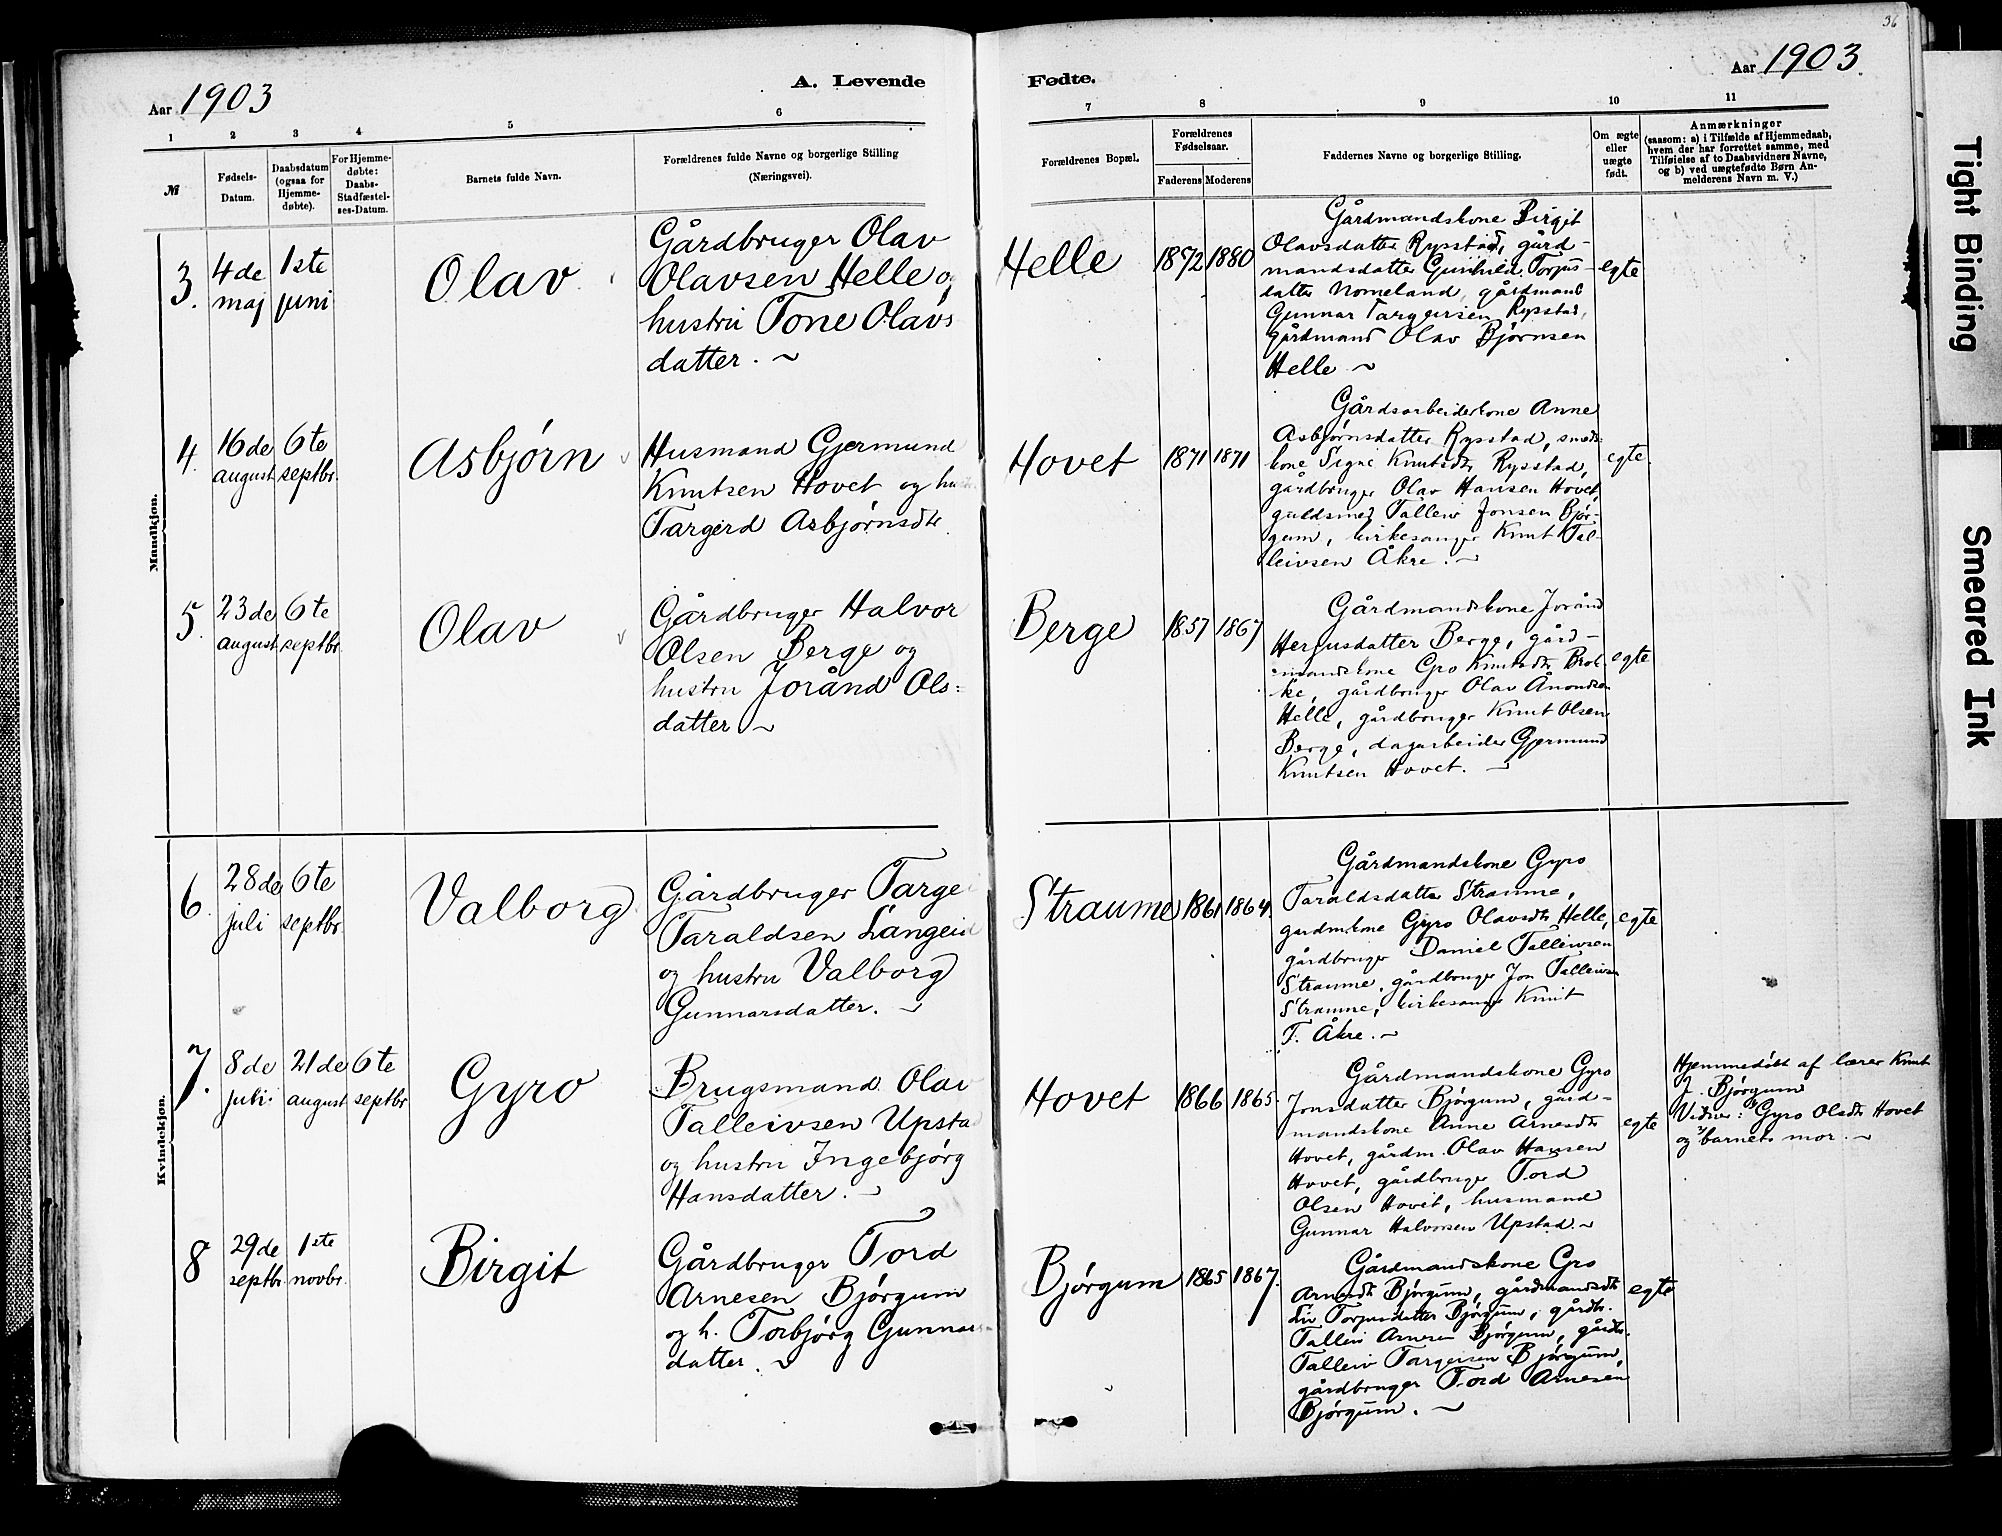 36
Aar 1903
A. Levende
Fødte.
Aar 1903.
1 2 3 4 5 6 7 8 9 10 11
№
Fødsels-
Datum.
Daabsdatum
(ogsaa for
Hjemme-
døbte).
For Hjemme-
døbte:
Daabs-
Stadfæstel-
ses-Datum.
Barnets fulde Navn.
Forældrenes fulde Navne og borgerlige Stilling
(Næringsvei).
Forældrenes Bopæl.
Forældrenes
Fødselsaar.
Faderens Moderens
Faddernes Navne og borgerlige Stilling.
Om ægte
eller
uægte
født.
Anmærkninger
(saasom: a) i Tilfælde af Hjemmedaab,
hvem der har forrettet samme, med
Tilføielse af to Daabsvidners Navne,
og b) ved uægtefødte Børn An-
melderens Navn m. V.)
Mandkjøn.
3.
4de
maj
1ste
juni
Olav
Gårdbruger Olav
Olavsen Helle og
hustru Tone Olavs
datter. ~
Helle
1872 1880
Gårdmandskone Birgit
Olavsdatter Rysstad, gård-
mandsdatter Gunhild Torjus-
datter Nomeland, gårdmand
Gunnar Targeirsen Rysstad,
gårdmand Olav Bjørnsen
Helle ~
egte
4.
16de
august
6te
septbr.
Asbjørn
Husmand Gjermund
Knutsen Hovet og
Targerd Asbjørnsdtr
Hovet
1871 1871
Gårdsarbeiderkone Anne
Asbjørnsdatter Rysstad, smeds-
kone Signe Knutsdtr Rysstad,
gårdbruger Olav Hansen Hovet,
guldsmed Talleiv Jonsen Bjør-
gum, kirkesanger Knut Tal-
leivsen Åkre. ~
egte.
5.
23de
august
6te
septbr
Olav
Gårdbruger Halvor
Olsen Berge og
hustru Jorånd Ols=
datter ~
Berge
1857 1867
Gårdmandskone Jorånd
Herjusdatter Berge, gård-
mandskone Gro Knutsdtr Brok-
ke, gårdbruger Olav Ånondsen
Helle, gårdbruger Knut Olsen
Berge, dagarbeider Gjermund
Knutsen Hovet. ~
egte
Kvindekjøn.
6.
28de
juli
6te
septbr.
Valborg
Gårdbruger Targei
Taraldsen Langeid
og hustru Valborg
Gunnarsdatter. ~
Straume
1861 1864.
Gårdmandskone Gyro
Taraldsdatter Straume,
gardmkone Gyro Olavsdtr Helle,
gårdbruger Daniel Talleivsen
Straume, gårdbruger Jon Talleivsen
Straume, kirkesanger Knut
T. Åkre. ~
egte
7.
8de
juli
21de
august
6te
septbr
Gyro
Brugsmand Olav
Talleivsen Upstad
og hustru Ingebjørg
Hansdatter. ~
Hovet
1866 1865.
Gårdmandskone Gyro
Jonsdatter Bjørgum, gård-
mandskone Anne Arnesdtr
Hovet, gårdm. Olav Hansen
Hovet, gårdbruger Tord
Olsen Hovet, husmand
Gunnar Halvorsen Upstad. ~
egte
Hjemmedøbt af lærer Knut
J. Bjørgum
Vidner: Gyro Olsdtr Hovet
og barnets mor. ~
8
29de
septbr.
1ste
novbr.
Birgit
Gårdbruger Tord
Arnesen Bjørgum
og h. Torbjørg Gunnars-
datter. ~
Bjørgum
1865 1867.
Gårdmandskone Gro
Arnesdtr Bjørgum, gårdmandsdtr
Liv Torjusdatter Bjørgum, gårdbr.
Talleiv Arnesen Bjørgum, gårdbr.
Talleiv Targeirsen Bjørgum,
gårdbruger Tord Arnesen
Bjørgum. ~
egte
Tight Binding
Smeared Ink